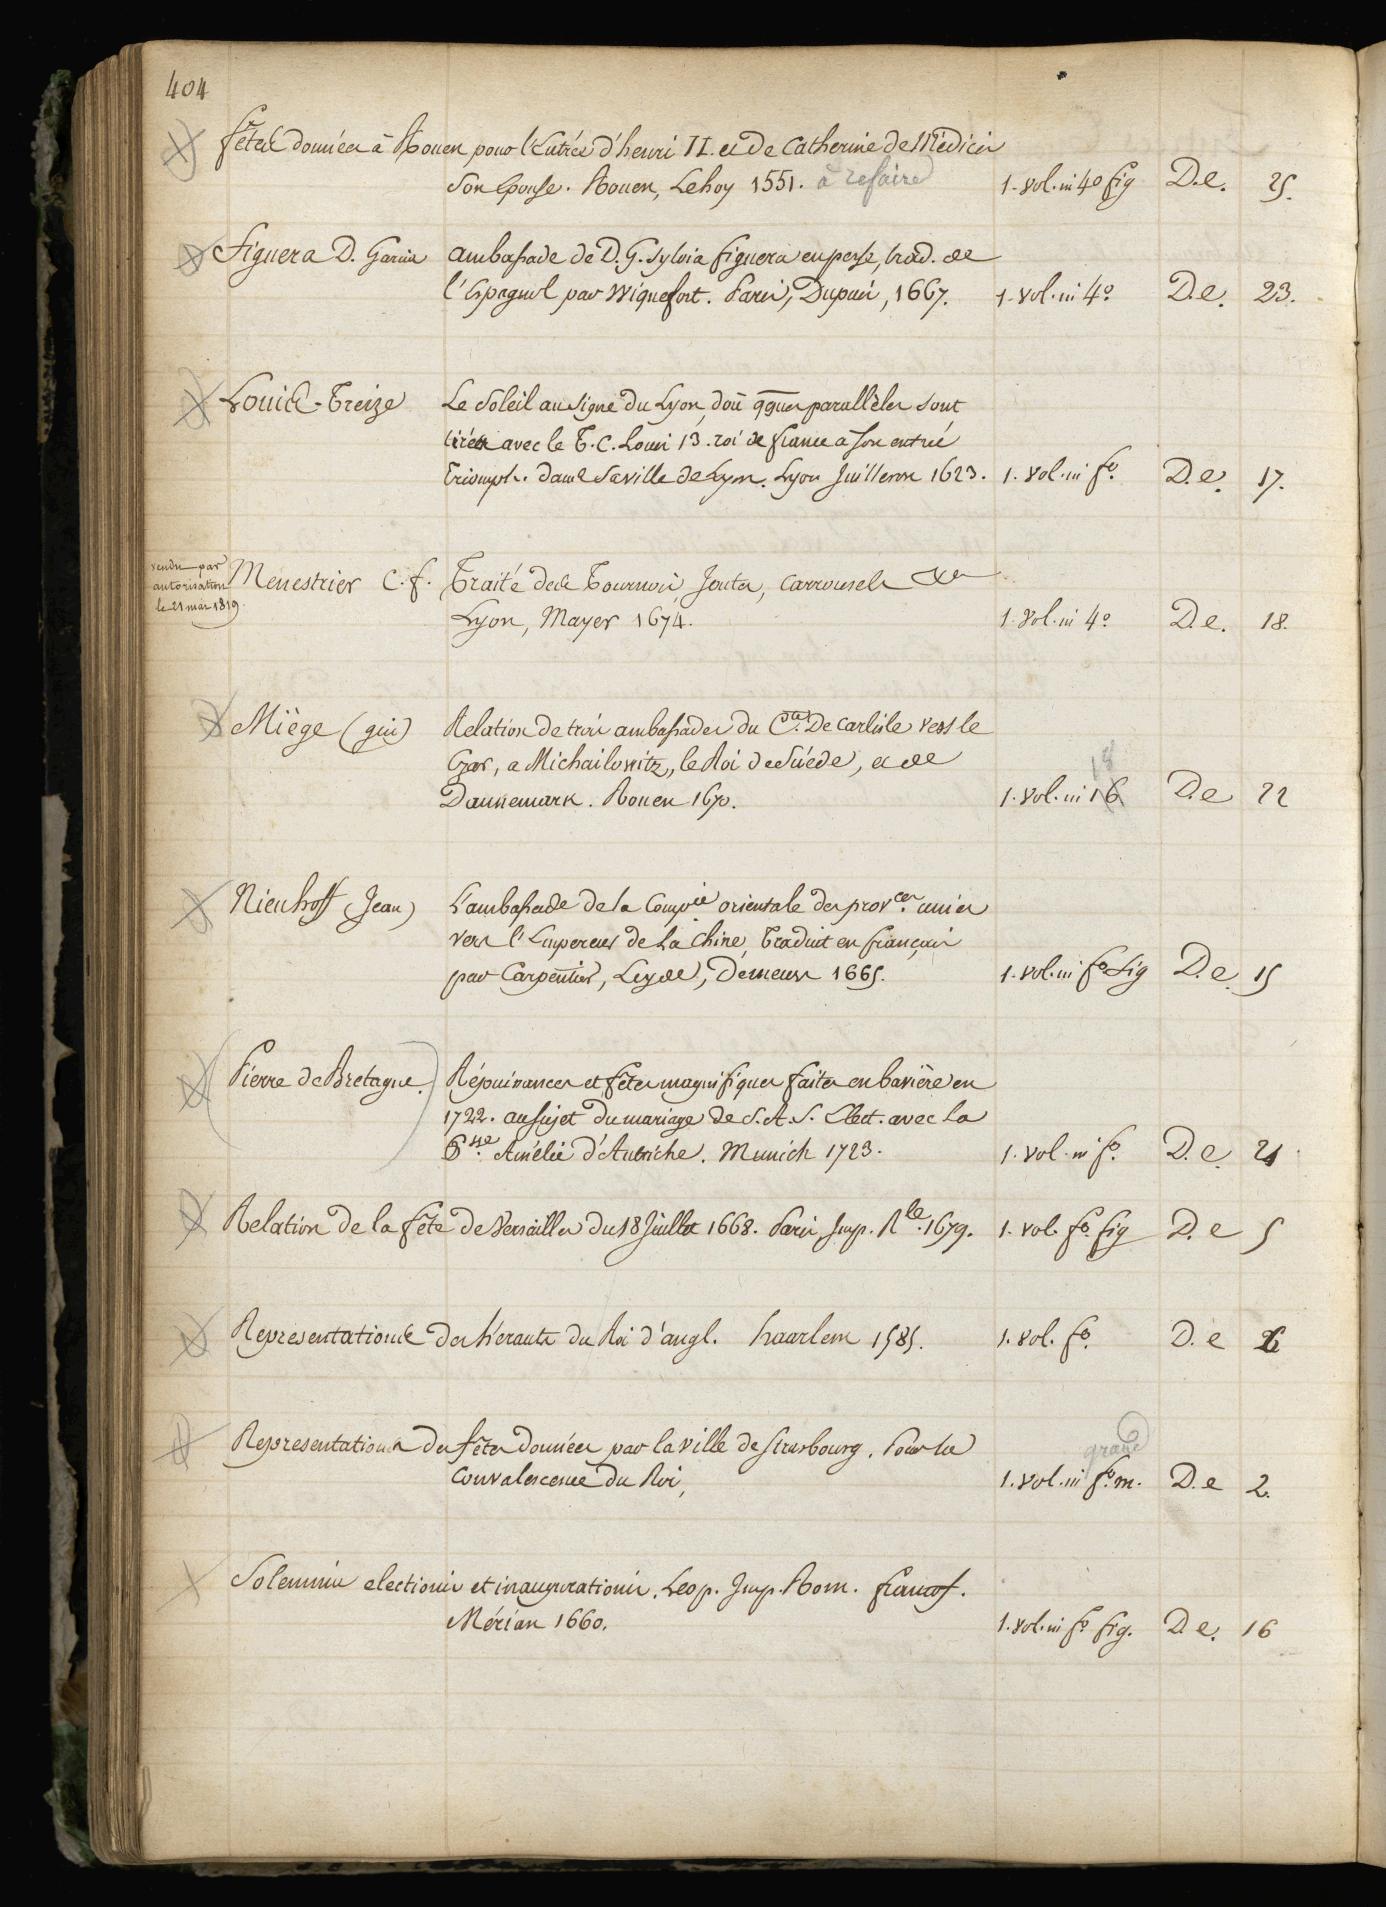 404
fêtes données à Rouen pour l'Entrée d'henri II. et de Catherine de Médicis
Son Epouse. Rouen, Lehoy 1551. à refaire 1. vol. in 4o fig D.e. 25.
Figuera D. Garcia ambassade de D. G. Sylvia figuera en perse, trad. de
l'Espagnol par Wiquefort. Paris, Dupuis, 1667. 1. vol. in 4o D.e. 23.
Louis-Treize Le Soleil au signe du Lyon, d'où qques parallèles sont
tirés avec le T. C. Louis 13. roi de france à son entrée
Triomph. dans sa ville de Lyon. Lyon Juilleron 1623. 1. vol. in fo. D.e. 17.
vendu par
autorisation
le 21 mai 1819.
Menestrier C. f. Traité des Tournois, Joutes, carrousels &a
Lyon, Mayer 1674. 1. vol. in 4o D.e. 18.
Miège (gui) Relation de trois ambassades du Cte. De Carlisle vers le
Czar, a Michailowitz, le Roi de Suéde, et de
18
Dannemark. Rouen 1670. 1. vol. in 16 D.e 22
Nieuhoff (Jean) L'ambassade de la Compie orientale des provces. unies
vers l'Empereur de la Chine, Traduit en français
par Carpentier, Leyde, Demeurs 1665. 1. vol. in fo fig D.e. 15
Pierre de Bretagne. Réjouissances et fêtes magnifiques faites en bavière en
1722. au sujet du mariage de S. A. S. Elect. avec la
Psse. Amélie d'Autriche. Munich 1723. 1. vol. in fo. D.e. 21
Relation de la fête de Versailles du 18 Juillet 1668. Paris, Imp. Rle. 1679. 1. vol. fo. fig D.e 5
Representations des hérauts du Roi d'angl. haarlem 1585. 1. vol. fo. D.e 6
Representations des fêtes données par la ville de strasbourg. Pour la
grand
convalescence du Roi, 1. vol. in fo. m. D.e 2.
Solemnia electionis et inaugurationis. Leop. Imp. Rom. francof.
Mérian 1660. 1. vol. in fo fig. D.e. 16